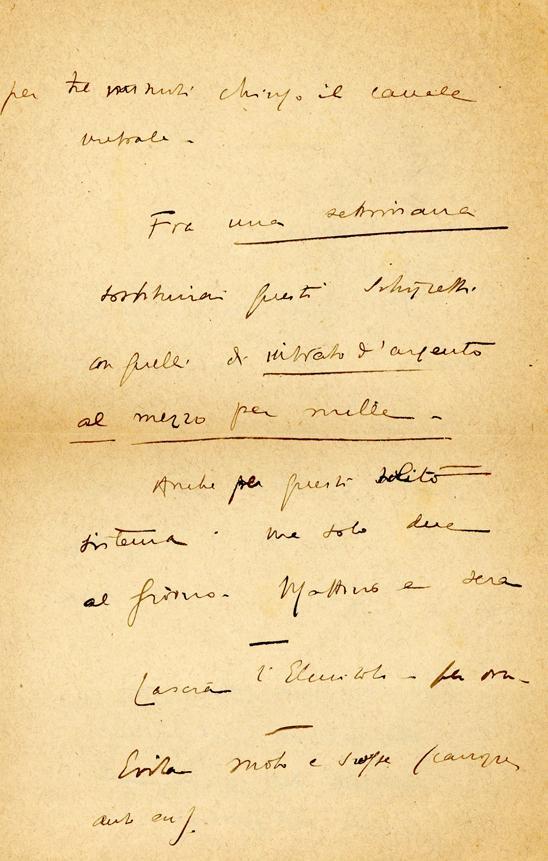 per tre minuti chiuso il canale
uretrale -
Fra una settimana
sostituirai questi schizzetti
con quelli di nitrato d'argento
al mezzo per mille -
Anche per questi solito
sistema ma solo due
al giorno - Mattino e sera
Lascia l'Elmitolo - per ora -
Evita moto e